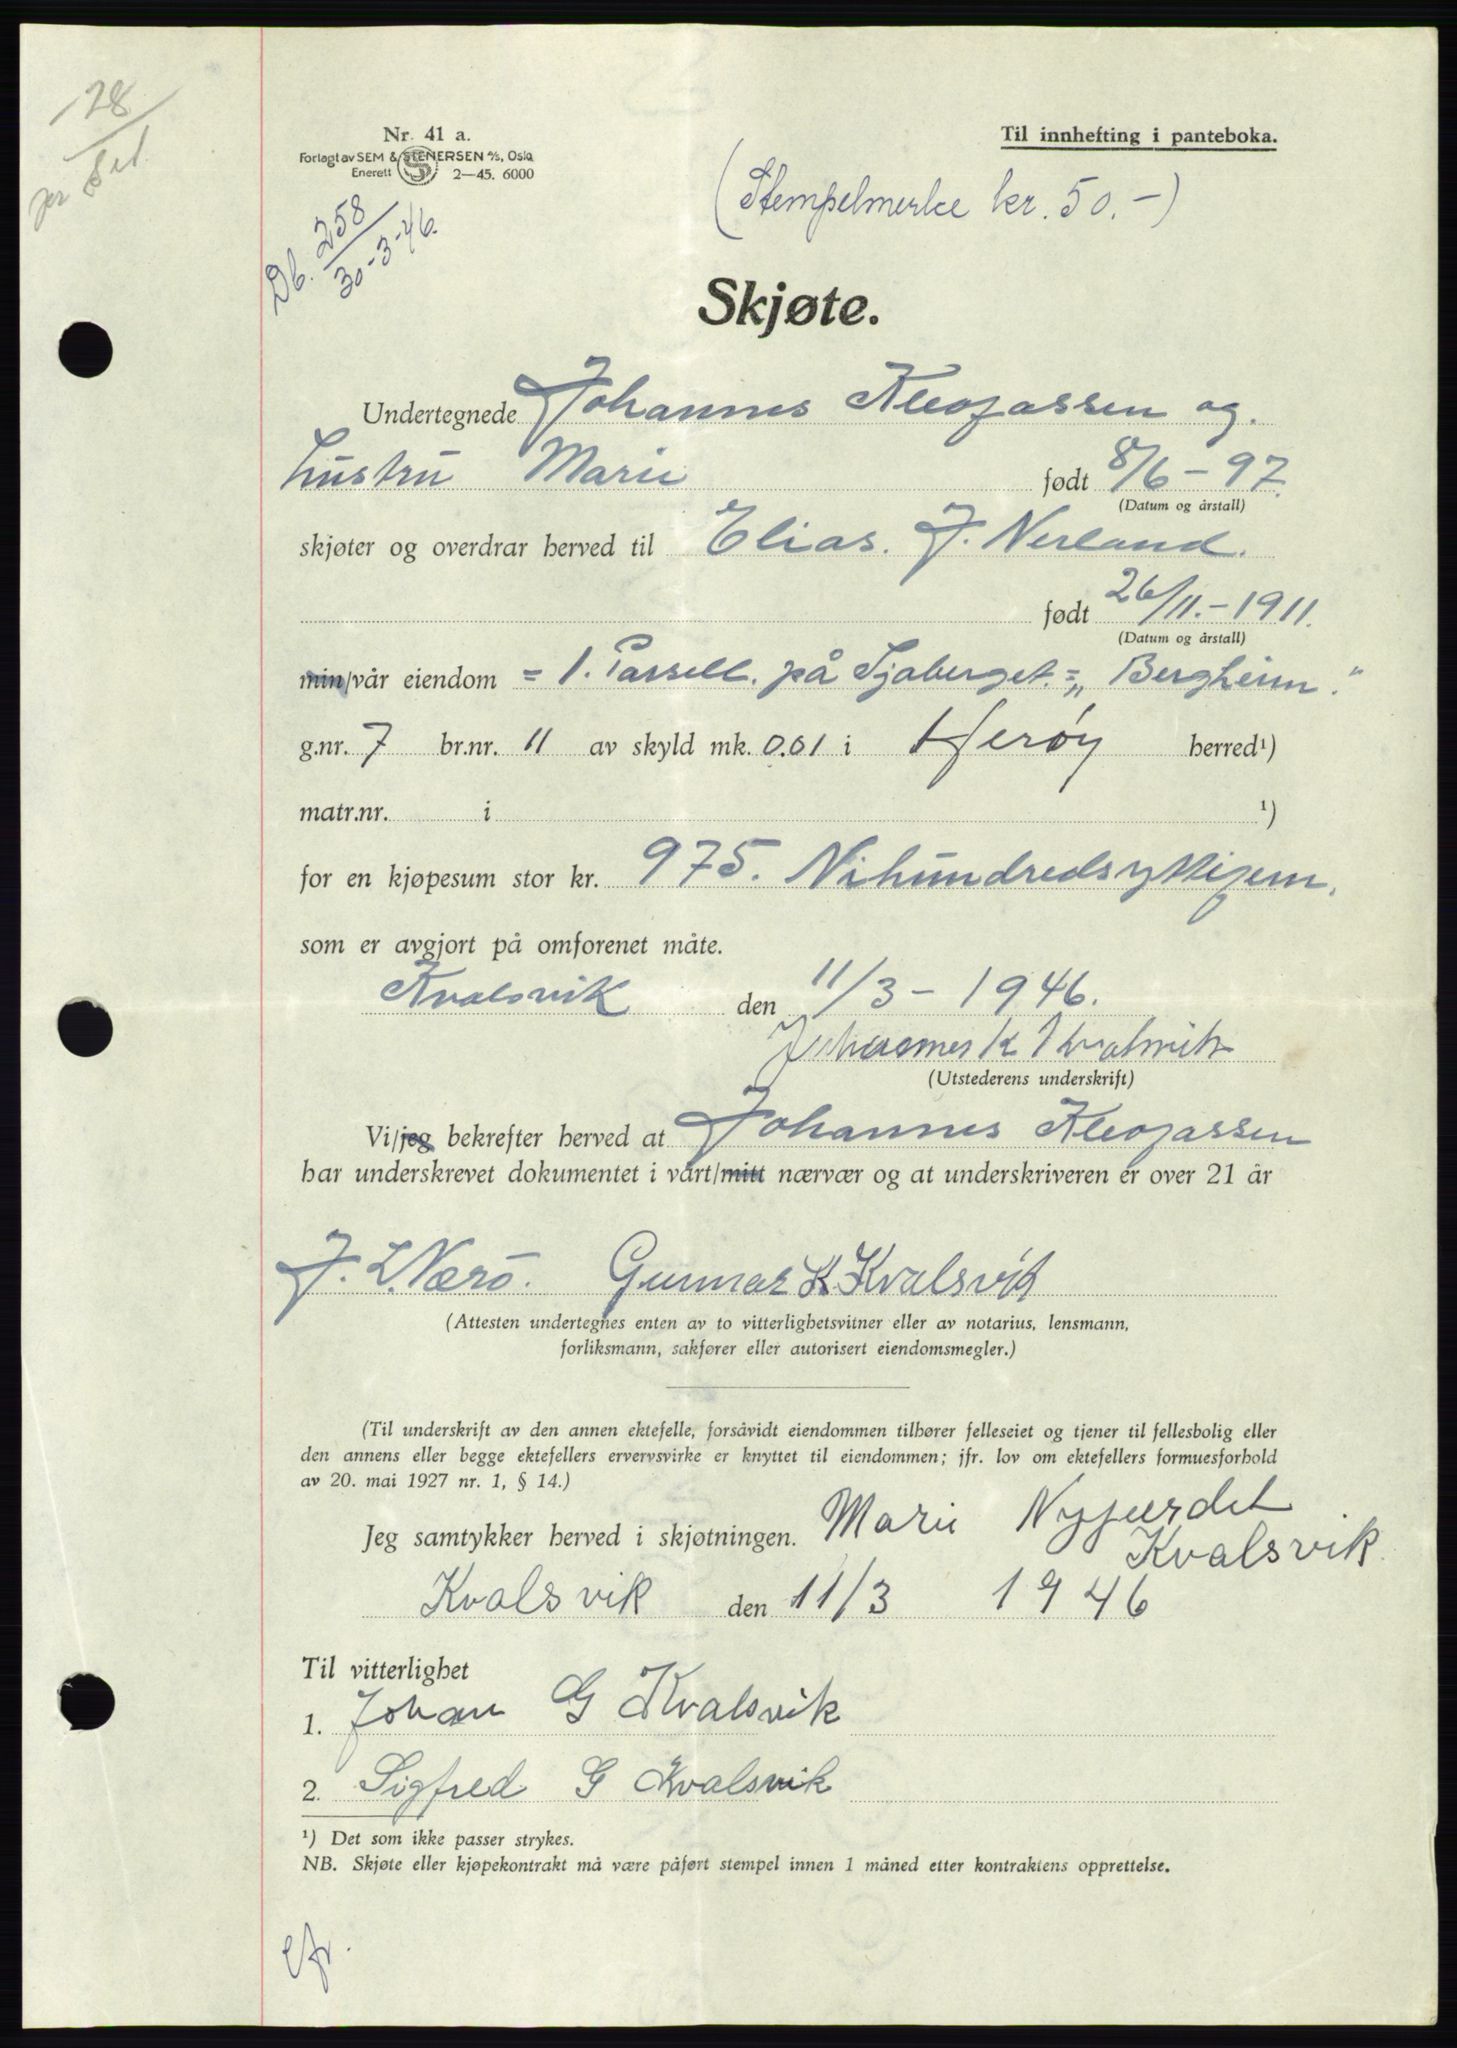 28
Nr. 41 a.
Forlagt av SEM & STENERSEN A/S, Oslo
Enerett 2—45. 6000
Til innhefting i panteboka.
(Stempelmerke kr. 50.-)
Db. 258
30-3-46.
Skjøte.
Undertegnede Johannes Kleofassen og
hustru Marie født 8/6 - 97.
(Datum og årstall)
skjøter og overdrar herved til Elias. J. Nerland.
født 26/11.-1911.
(Datum og årstall)
min/vår eiendom = 1. Parsell. på Sjaberget. = „Bergheim."
g.nr. 7 br.nr. 11 av skyld mk. 0.01 i Herøy herred¹)
matr.nr. i ¹)
for en kjøpesum stor kr. 975. Nihundredsyttifem.
som er avgjort på omforenet måte.
Kvalsvik den 11/3 - 1946.
Johannes K Kvalsvik
(Utstederens underskrift)
Vi/jeg bekrefter herved at Johannes Kleofassen
har underskrevet dokumentet i vårt/mitt nærvær og at underskriveren er over 21 år
J. L. Nærø. Gunnar K. Kvalsvik
(Attesten undertegnes enten av to vitterlighetsvitner eller av notarius, lensmann,
forliksmann, sakfører eller autorisert eiendomsmegler.)
(Til underskrift av den annen ektefelle, forsåvidt eiendommen tilhører felleseiet og tjener til fellesbolig eller
den annens eller begge ektefellers ervervsvirke er knyttet til eiendommen; jfr. lov om ektefellers formuesforhold
av 20. mai 1927 nr. 1, § 14.)
Jeg samtykker herved i skjøtningen. Marie Nyjerdet
Kvalsvik
Kvalsvik den 11/3 1946
Til vitterlighet
1. Johan G Kvalsvik
2. Sigfred G Kvalsvik
¹) Det som ikke passer strykes.
NB. Skjøte eller kjøpekontrakt må være påført stempel innen 1 måned etter kontraktens opprettelse.